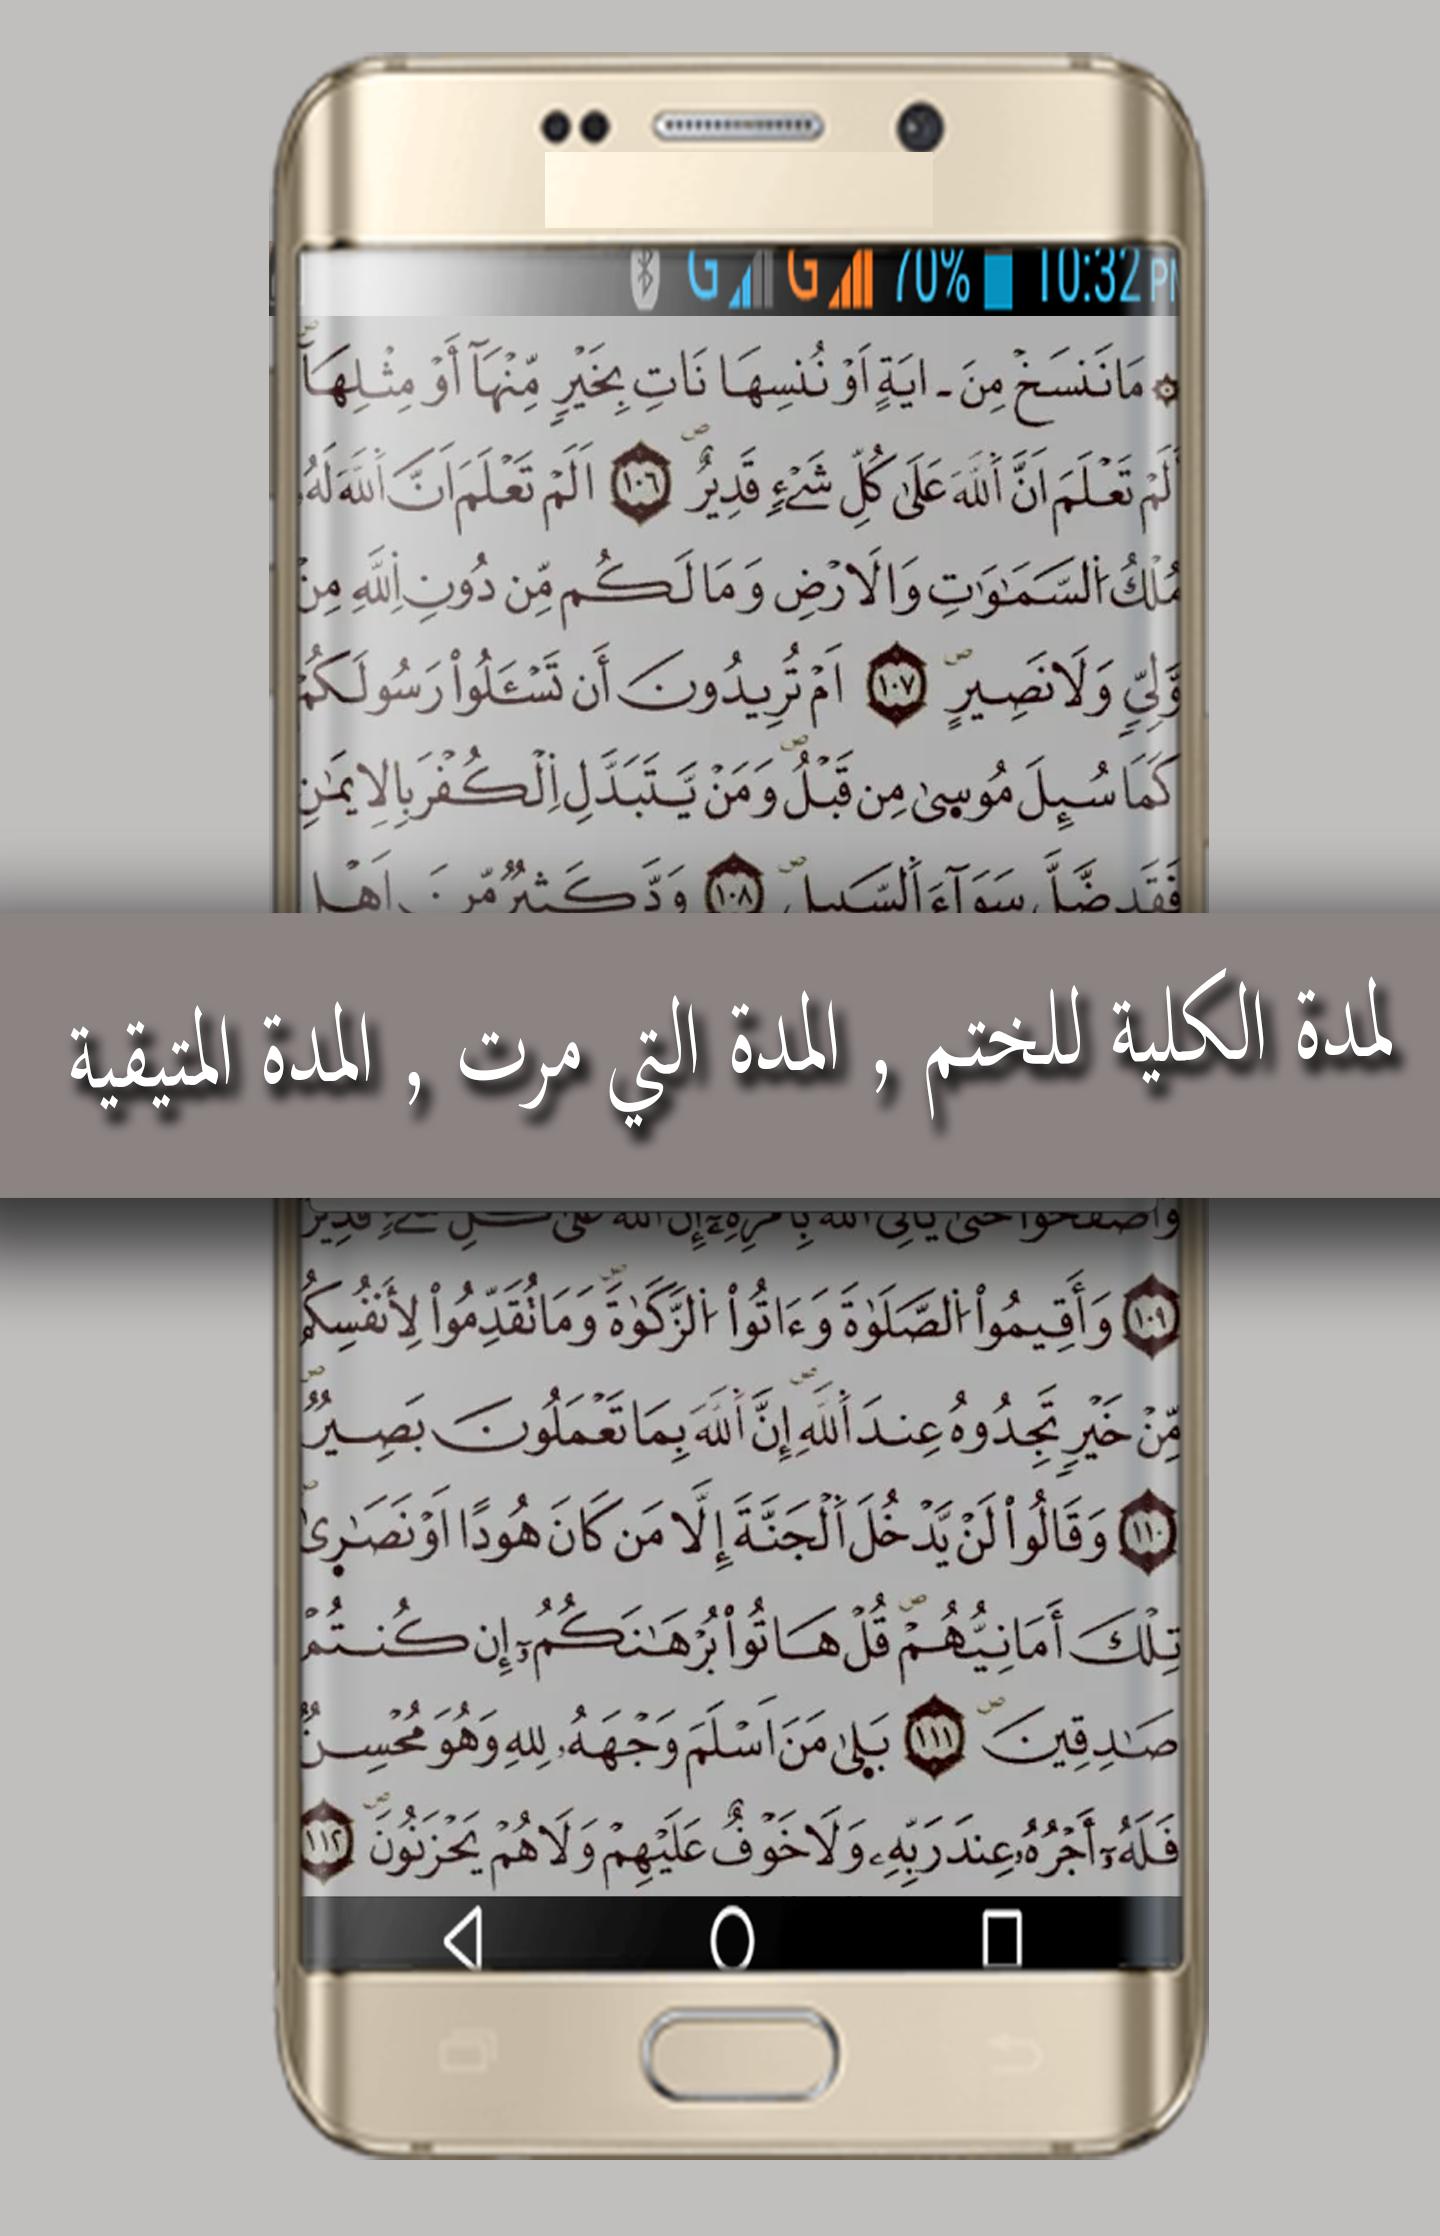 G G 70% 10:32 PM
مَا نَنسَخْ مِنَ ايَةٍ اَوْ نُنسِهَا نَاتِ بِخَيْرٍ مِّنْهَآ أَوْ مِثْلِهَآ
أَلَمْ تَعْلَمَ اَنَّ اَللَّهَ عَلَىٰ كُلِّ شَےْءٍ قَدِيرٌ ١٠٦ اَلَمْ تَعْلَمَ اَنَّ اَللَّهَ لَهُۥ
مُلْكُ اُلسَّمَٰوَٰتِ وَالَارْضِ وَمَا لَكُم مِّن دُونِ اِللَّهِ مِنْ
وَّلِيٍّ وَلَا نَصِيرٍ ١٠٧ اَمْ تُرِيدُونَ أَن تَسْـَٔلُواْ رَسُولَكُمْ
كَمَا سُئِلَ مُوسِىٰ مِن قَبْلُ وَمَنْ يَّتَبَدَّلِ اِلْكُفْرَ بِالِايمَٰنِ
فَقَد ضَّلَّ سَوَآءَ اَلسَّبِيلِ ١٠٨ وَدَّ كَثِيرٌ مِّنَ اَهْلِ
لمدة الكلية للختم , المدة التي مرت , المدة المتيقية
وَاصْفَحُواْ حَتَّىٰ يَاتِىَ اَللَّهُ بِأَمْرِهِۦٓ إِنَّ اَللَّهَ عَلَىٰ كُلِّ شَےْءٍ قَدِيرٌ
١٠٩ وَأَقِيمُواْ اُلصَّلَوٰةَ وَءَاتُواْ اُلزَّكَوٰةَ وَمَا تُقَدِّمُواْ لِأَنفُسِكُم
مِّنْ خَيْرٍ تَجِدُوهُ عِندَ اَللَّهِ إِنَّ اَللَّهَ بِمَا تَعْمَلُونَ بَصِيرٌ
١١٠ وَقَالُواْ لَنْ يَّدْخُلَ اَلْجَنَّةَ إِلَّا مَن كَانَ هُودًا اَوْ نَصَٰرِىٰ
تِلْكَ أَمَانِيُّهُمْ قُلْ هَاتُواْ بُرْهَٰنَكُمُۥٓ إِن كُنتُمْ
صَٰدِقِينَ ١١١ بَلِىٰ مَنَ اَسْلَمَ وَجْهَهُۥ لِلهِ وَهُوَ مُحْسِنٌ
فَلَهُۥٓ أَجْرُهُۥ عِندَ رَبِّهِۦ وَلَا خَوْفٌ عَلَيْهِمْ وَلَا هُمْ يَحْزَنُونَ ١١٢